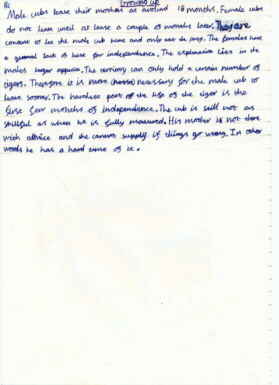 Growing up
Male cubs leave their mother at around 18 months. Female cubs
do not leave until at lease a couple of months later. They are
content to let the male cub leave and only use the
a general lack of have for independence. The explanation lies in the
males larger appetite. The territory can only hold a certain number of
tigers. Therefore it is more necessary for the male cub to
leave sooner. The hardest part of the life of the tiger is the
first few months of independence. The cub is still not as
skillful as when he is fully matured. His mother is not there
with advice and she cannot supply if things go wrong. In other
words he has a hard time of it.